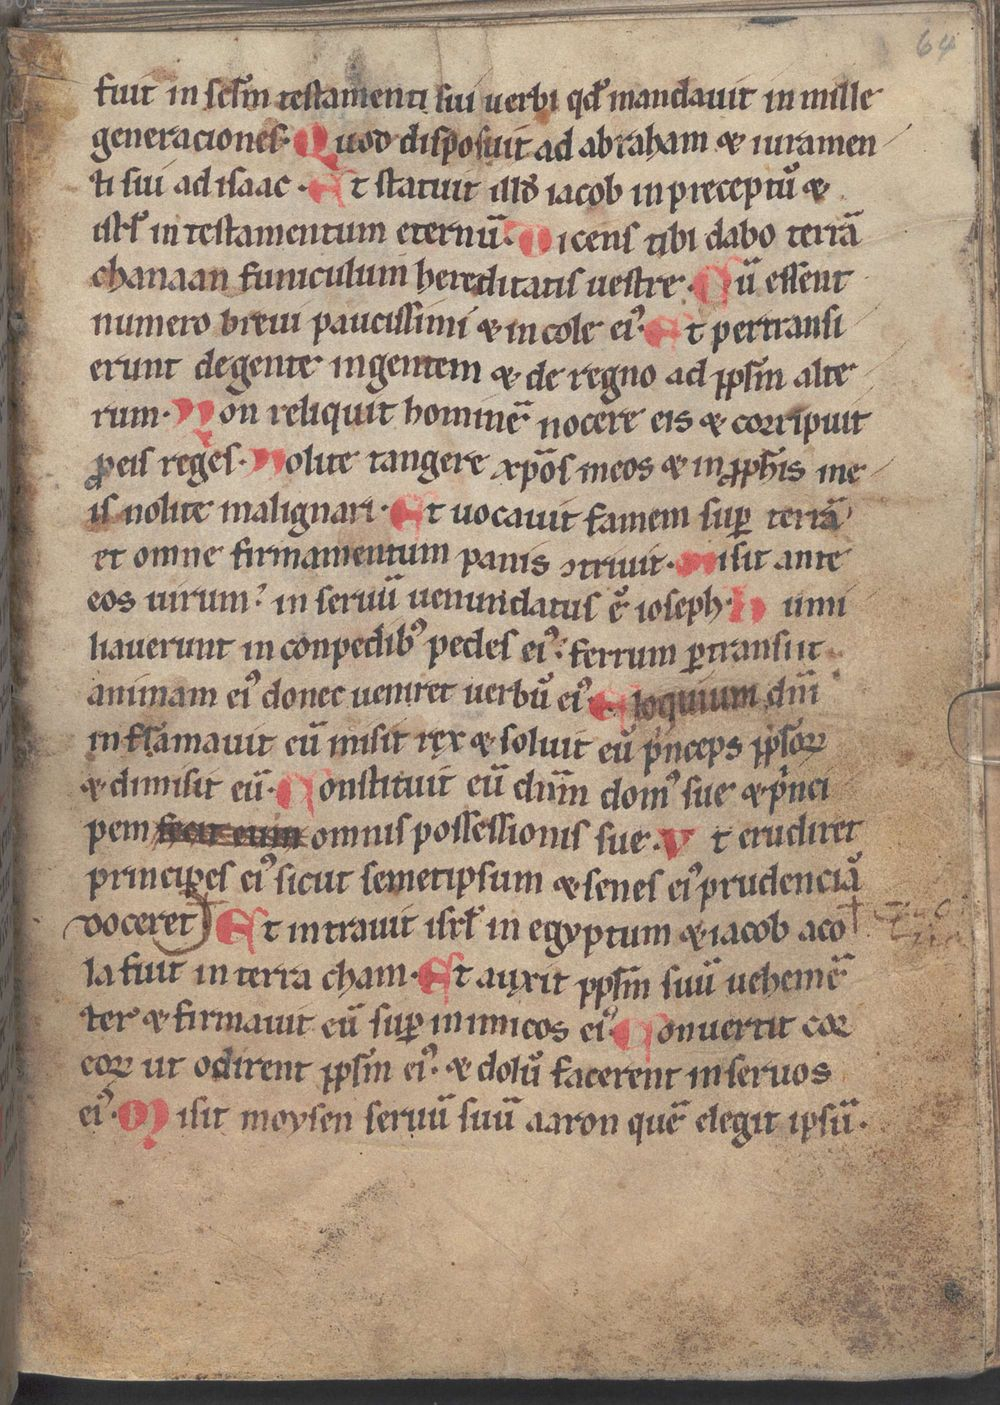 64
fuit in sclm̄ testamenti sui uerbi qđ mandauit in mille
generaciones· Quod disposuit ad abraham ⁊ iuramen
ti sui ad isaac· Et statuit illđ iacob in preceptū ⁊
isrl̄ in testamentum eternū· Dicens tibi dabo terrā
chanaan funiculum hereditatis uestre· Cū essent
numero breui paucissimi ⁊ incole eiꝰ· Et pertransi
erunt de gente in gentem ⁊ de regno ad ppłm alte
rum· Non reliquit hominē nocere eis ⁊ corripuit
ꝓ eis reges· Nolite tangere xp̄os meos ⁊ in ꝓph̄is me
is nolite malignari· Et uocauit famem suꝑ terrā
et omne firmamentum panis ↄtriuit· Misit ante
eos uirum? in seruū uenundatus ē ioseph· humi
liauerunt in conpedibꝰ pedes eiꝰ· ferrum ꝑtransiit
animam eiꝰ donec ueniret uerbū eiꝰ· Eloquium dn̄i
inflamauit eū misit rex ⁊ soluit eū pͥnceps ppłoꝝ
⁊ dimisit eū· Constituit eū dn̄m domꝰ sue ⁊ pͥnci
pem fecit eum omnis possessionis sue· Vt erudiret
principes eiꝰ sicut semetipsum ⁊ senes eiꝰ prudenciā
doceret Et intrauit isrl̄ in egyptum ⁊ iacob aco
la fuit in terra cham· Et auxit ppłm suū uehemē
ter ⁊ firmauit eū suꝑ inimicos eiꝰ· Conuertit cor
eoꝝ ut odirent ppłm eiꝰ· ⁊ dolū facerent in seruos
eiꝰ· Misit moysen seruū suū aaron quē elegit ipsū·